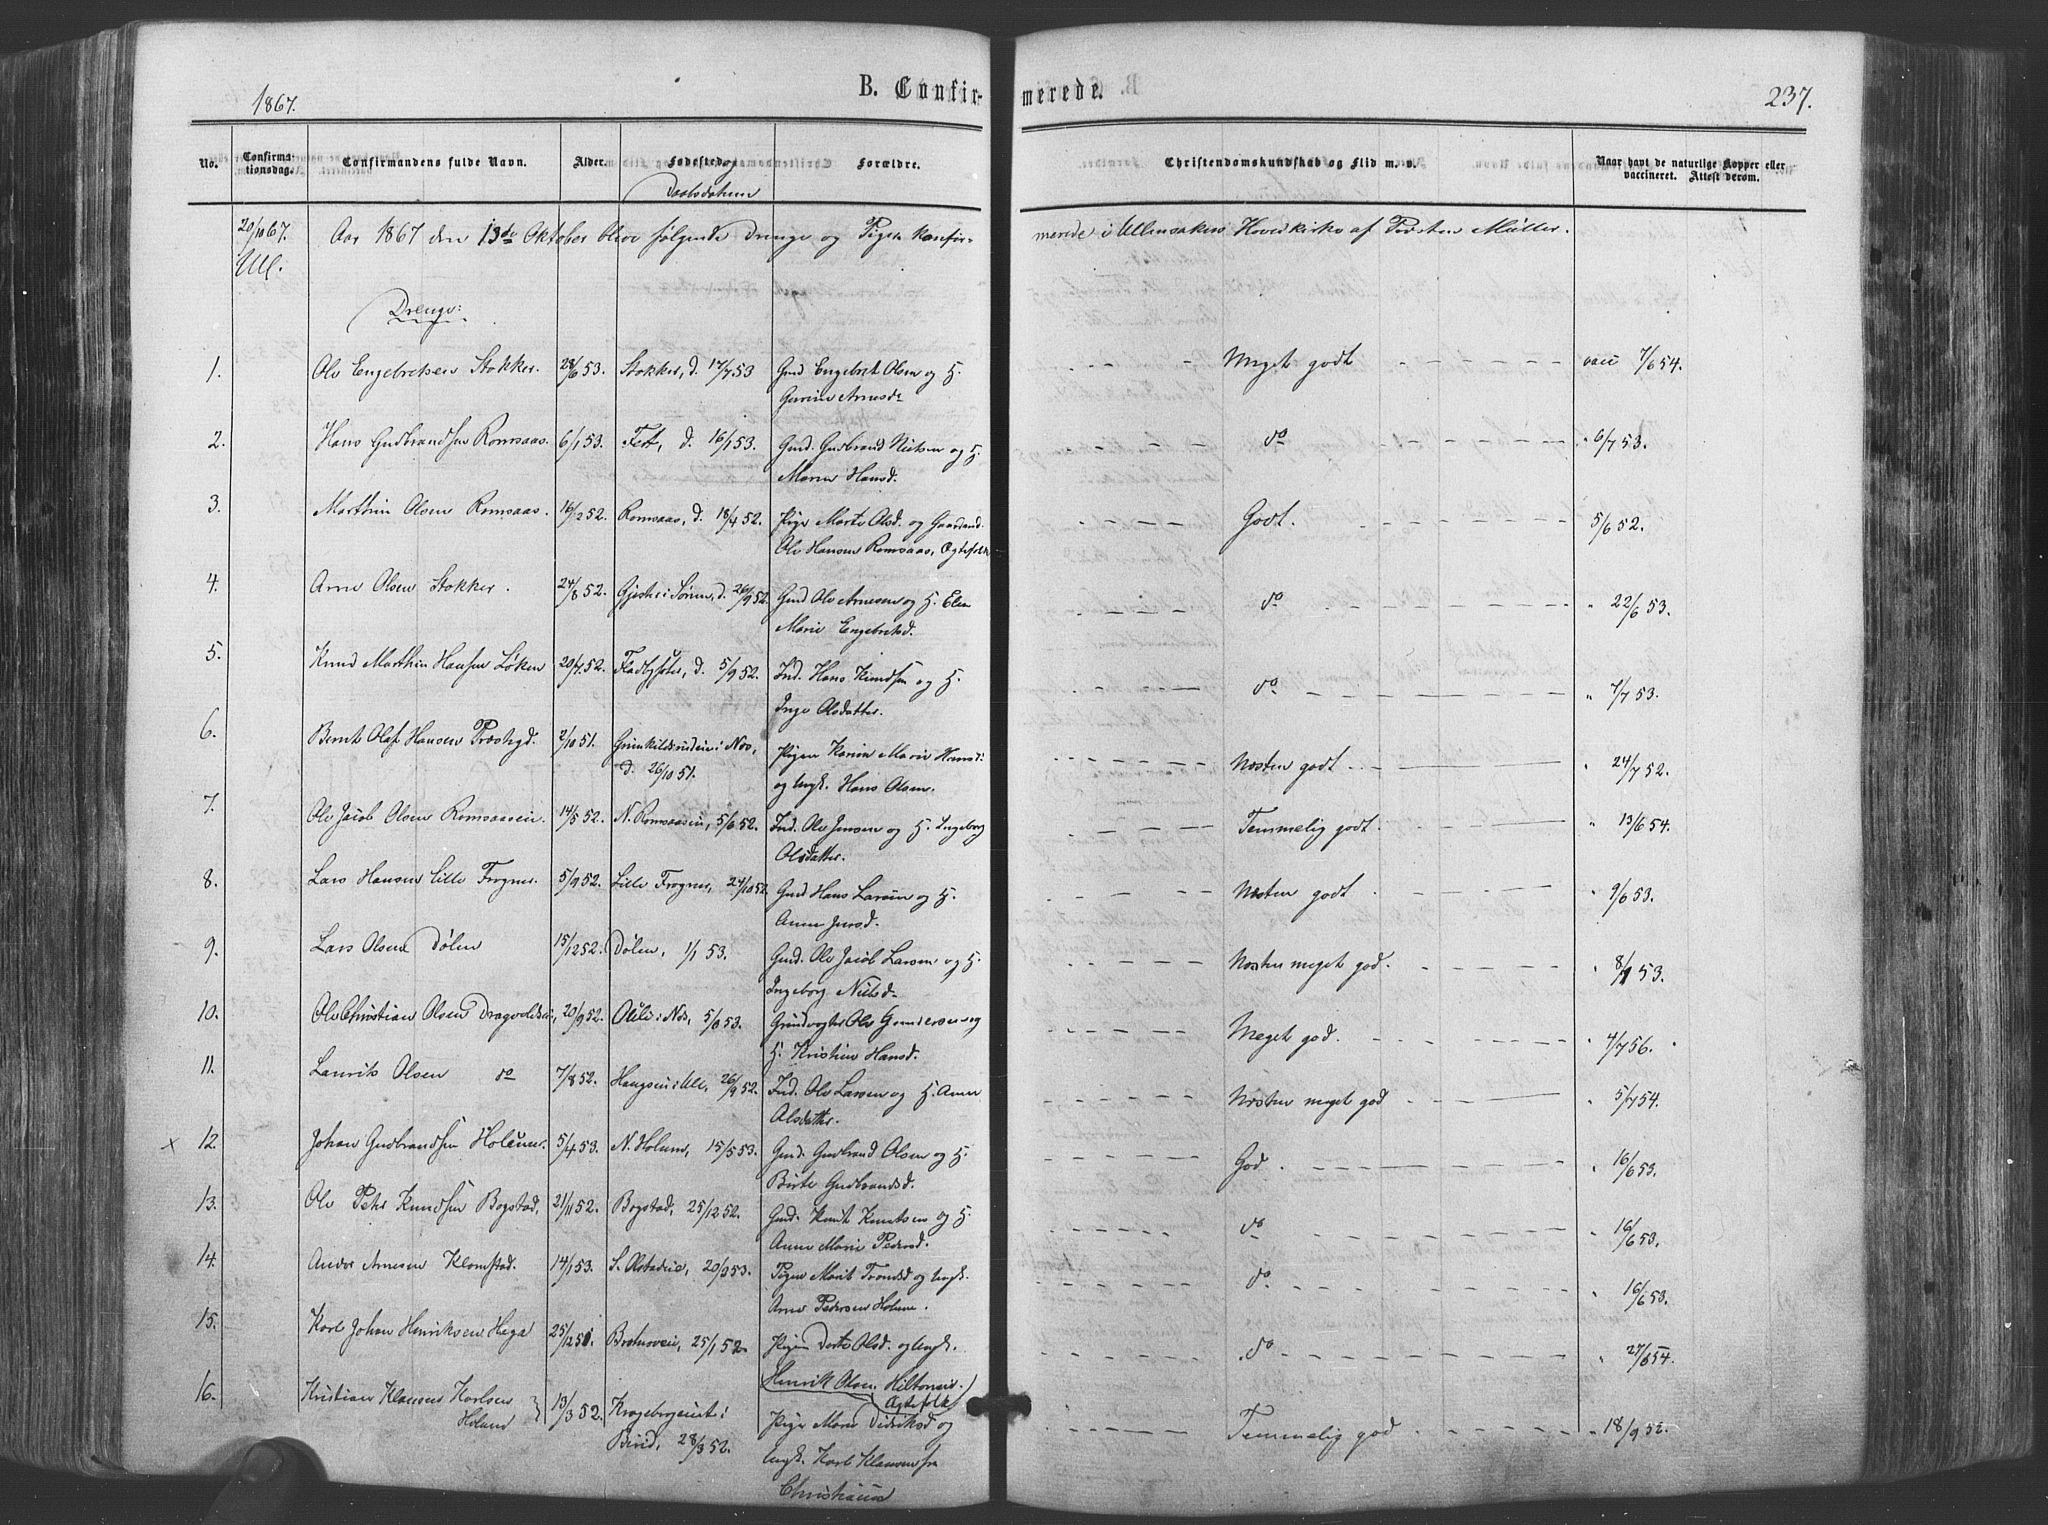 1867.
B. Confirmerede.
237.
No.
Confirmationsdag.
Confirmandens fulde Navn.
Alder.
Fødested og Daabsdatum
Forældre.
Christendomskundskab og Flid m. v.
Naar havt de naturlige Kopper eller vaccineret. Attest derom.
20/10 67. Ull.
Aar 1867 den 13de Oktober bleve følgende Drenge og Piger konfirmerede i Ullensakers Hovedkirke af Presten Müller.
Drenge:
1. Ole Engebretsen Stokker. 28/6 53. Stokker, d. 17/7 53 Gmd Engebret Olsen og H. Meget godt vacc 7/6 54.
Gurine Arnesd.
2. Hans Gudbrandsen Romsaas. 6/1 53. Fet, d. 16/1 53. Gmd. Gudbrand Nielsen og H. do " 6/7 53.
Maren Hansd.
3. Marthin Olsen Romsaas. 16/2 52. Romsaas, d. 18/4 52. Pige Marte Olsd. og Gaardmd. Godt. 5/6 52.
Ole Hansen Romsaas, Ægtefolk
4. Arne Olsen Stokker. 24/8 52. d. 26/9 52. Gmd Ole Arnesen og H. Elen do " 22/6 53.
Marie Engebretsd.
5. Knud Marthin Hansen Løken 20/7 52. d. 5/9 52. Ind. Hans Knudsen og H. do " 7/7 53.
Inge Olsdatter.
6. Bernt Olaf Hansen Præstgd. 2/10 51. i Næs, Pigen Karen Marie Hansd. Næsten godt " 24/7 52.
d. 26/10 51. og Ungk. Hans Olsen.
7. Ole Jacob Olsen Romsaaseie. 14/5 52. N. Romsaaseie, 5/6 52. Ind. Ole Jensen og H. Ingeborg Temmelig godt. " 13/6 54.
Olsdatter.
8. Lars Hansen Lille Frogner. 5/9 52. Lille Frogner, 24/10 52. Gmd Hans Larsen og H. Næsten godt " 9/6 53.
Anne Jensd.
9. Lars Olsen Dølen 15/12 52. Dølen, 1/1 53. Gmd. Ole Jacob Larsen og H. Næsten meget god. 53.
Ingeborg Nielsd.
10. Ole Christian Olsen 20/9 52. i Næs, Ole Gundersen og Meget god. " 4/7 56.
H. Kristine Hansd.
11. Laurits Olsen do 7/8 52. Haugseie i Ull, 26/9 52. Ind. Ole Larsen og H. Anne Næsten meget god " 5/7 54.
Olsdatter.
x 12. Johan Gudbrandsen Holum. 5/4 53. N. Holum, 15/5 53. Gmd. Gudbrand Olsen og H. God " 16/6 53.
Birte Gudbrandsd.
13. Ole Peter Knudsen Bogstad, 21/11 52. Bogstad, 25/12 52. Gmd. Knut Knutsen og H. do " 16/6 53.
Anne Marie Pedersd.
14. Andor Arnesen Klomstad. 14/1 53. 20/3 53. Pigen Marit Trondsd og Ungk. do " 16/6 53.
Arne Pedersen Holum.
15. Karl Johan Henriksen Haga 25/12 51. 25/1 52. Pigen Dorte Olsd. og Ungk. do " 27/6 54.
Henrik Olsen Hiltoneie. Ægtefolk
16. Kristian Klausen Karlsen 13/3 52. i Pige Maren Didriksd og Temmelig god " 18/9 52.
Holund Birid, 28/3 52. Ungk. Karl Klausen fra
Christiania